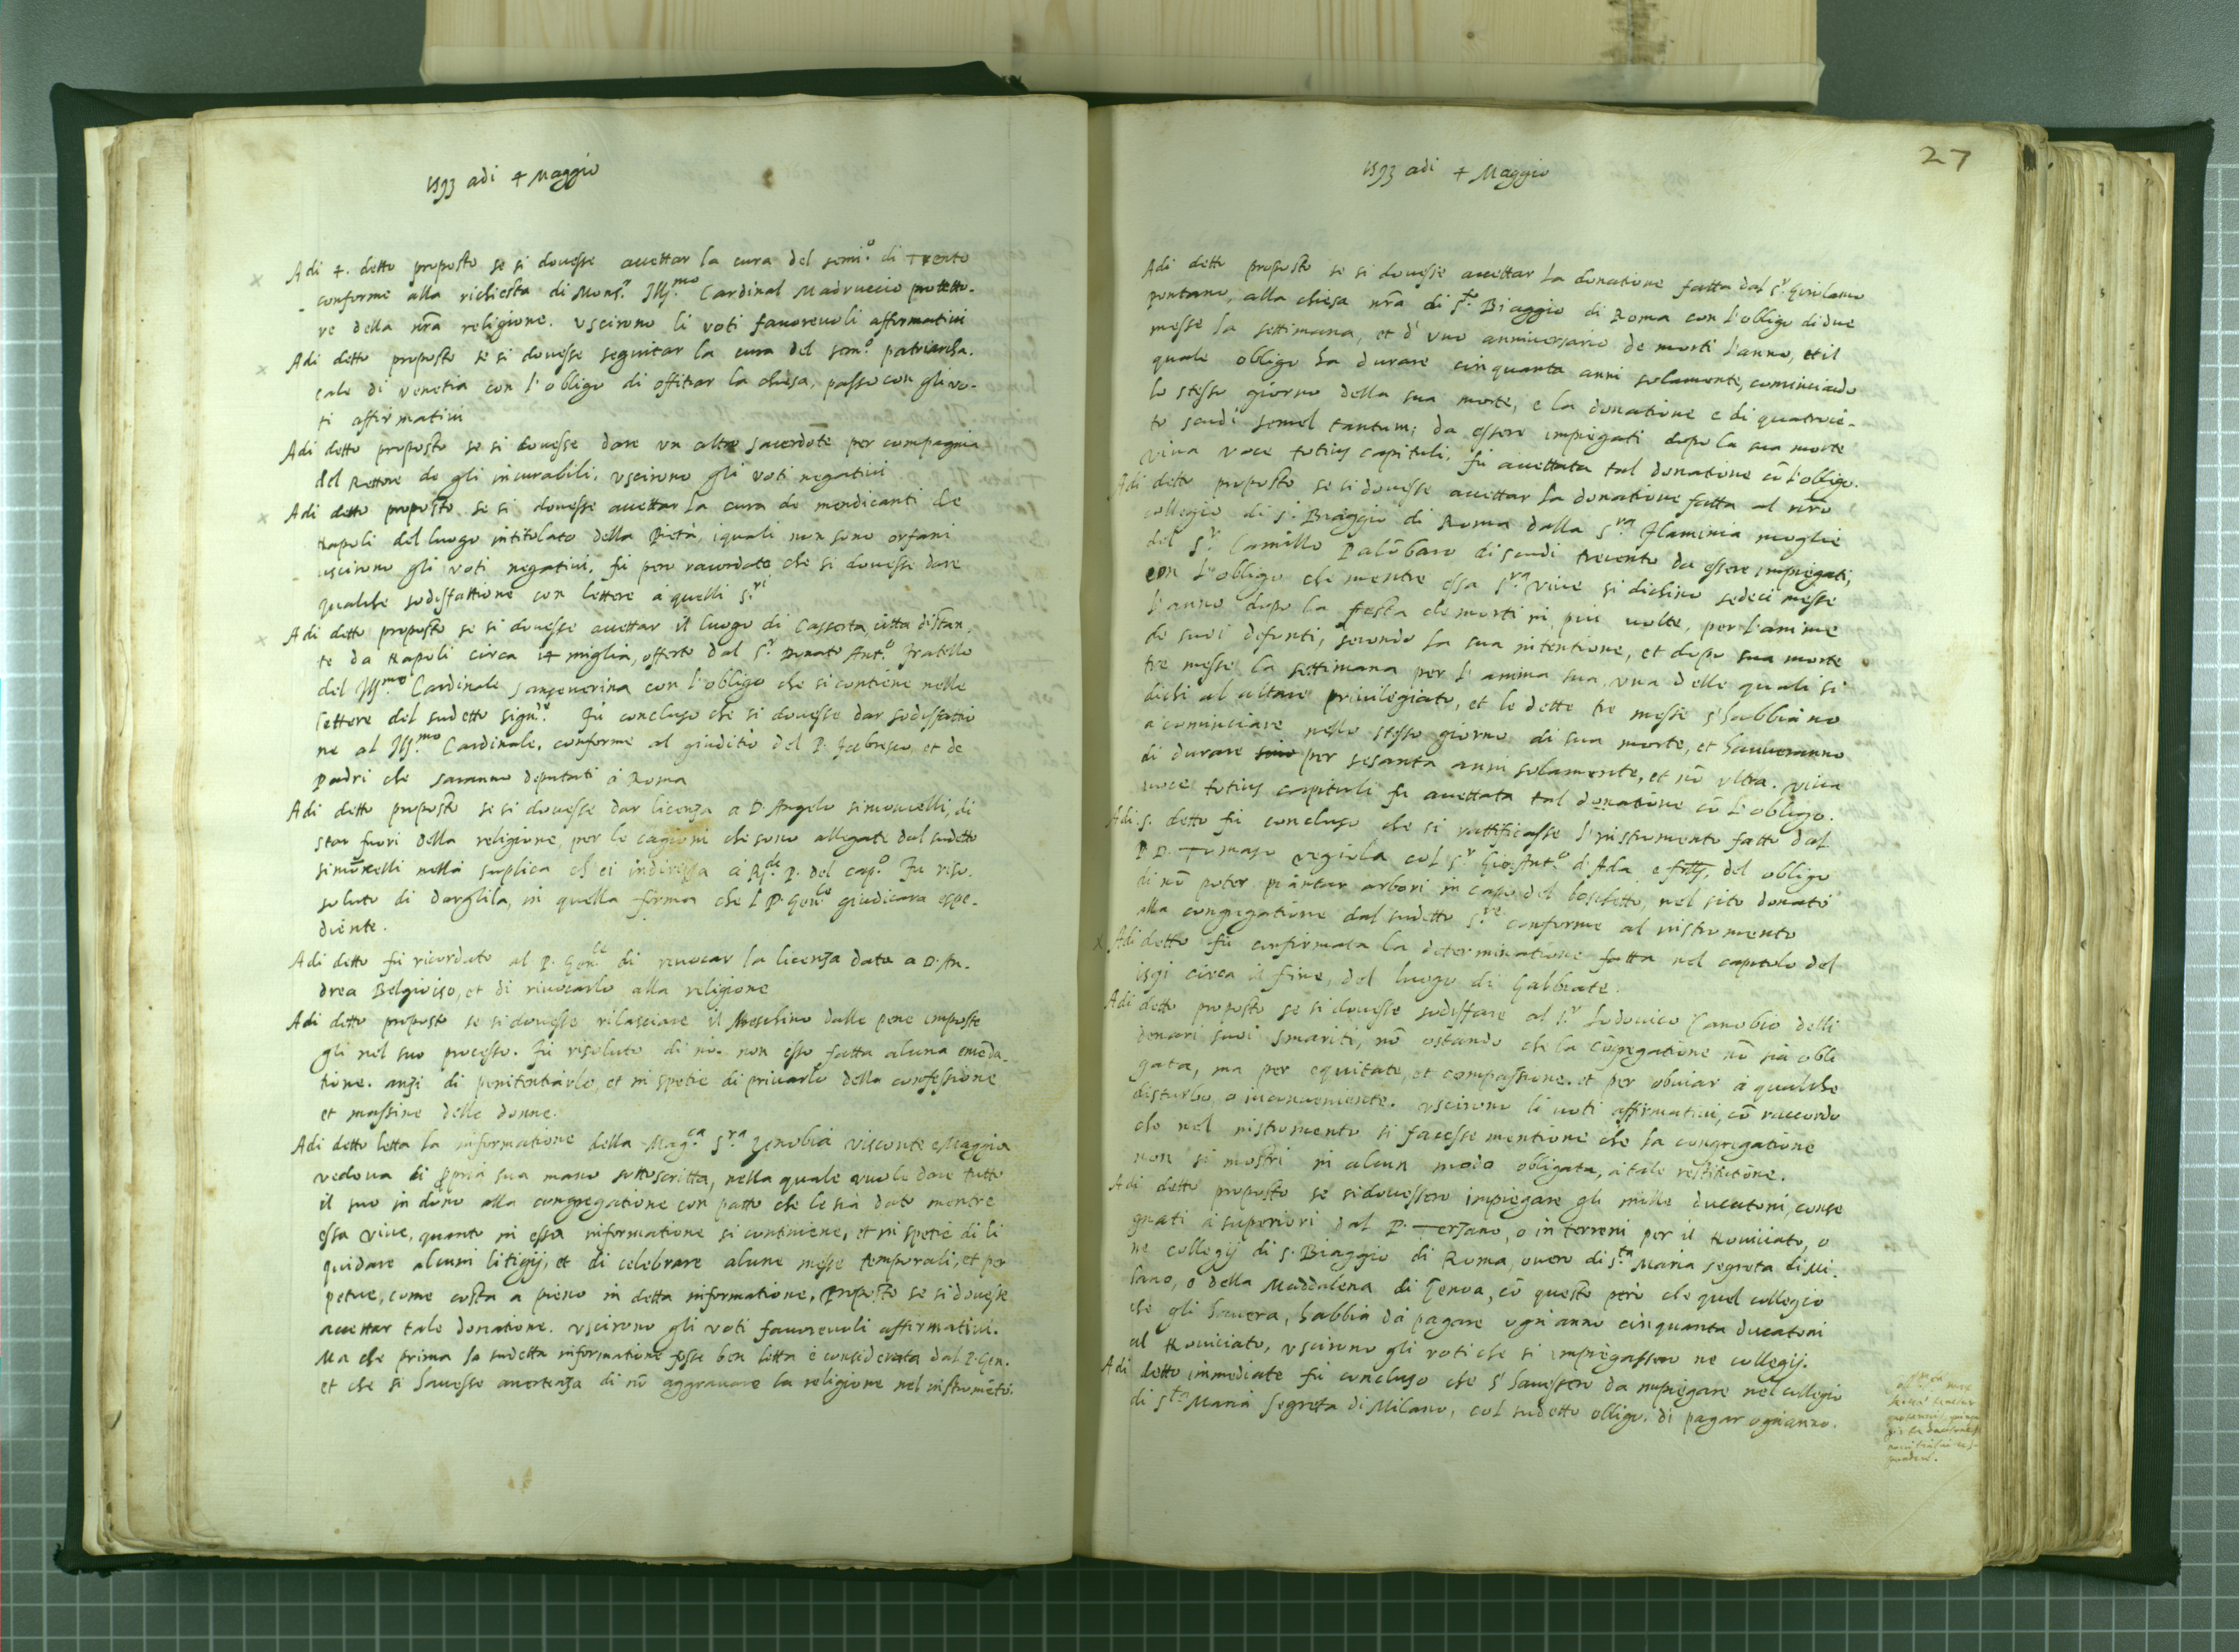 1593 adi 4 Maggio
Adi 4. detto proposto se si douesse accettar la cura del semi.º di Trento
conforme alla richiesta di Mons.r Ill.mo Cardinal Madruccio protetto-
re della nrã religione. Uscirono li voti fauoreuoli affirmatiui
Adi detto proposto se si douesse seguitar la cura del sem.º patriarcha.
cale di Venetia con l'obligo di offitiar la chiesa, passo con gli vo-
ti affirmatiui
Adi detto proposto se si douesse dare un altro sacerdote per compagnia
del Rettore de gli incurabili, uscirono gli voti negatiui
Adi detto proposto se si douesse accettar la cura de mendicanti de
Napoli del luogo intitolato della Pietà, i quali non sono orfani
uscirono gli voti negatiui, fù pero racordato che si douesse dare
qualche sodisfattione con lettere à quelli S.ri
Adi detto proposto se si douesse accettar il luogo di Casserta, città distan.
te da Napoli circa 14 miglia, offerto dal S.r Donato Ant.º Fratello
del Ill.mo Cardinale Sanseuerina con l'obligo che si contiene nelle
lettere del sudetto sign.re Fù concluso che si douesse dar sodisfattio
ne al Ill.mo Cardinale, conforme al giuditio del P. Fabresco, et de
Padri che saranno deputati à Roma
Adi detto proposto se si douesse dar licenza a D. Angelo simoncelli, di
star fuori della religione, per le cagioni che sono allegate dal sudetto
simõncelli nella suplica ch'ei indirizza à R.di P. del cap.º Fu riso.
soluto di dargliela, in quella forma che l P. Gen.le giudicara espe-
diente.
Adi detto fù ricordato al P. Gen.le di reuocar la licenza data a D. An.
drea Belgioiso, et di riuocarlo alla religione
Adi detto proposto se si douesse rilasciare il Meschino dalle pene imposte
gli nel suo processo. Fù risoluto di nò. non esso fatta alcuna emẽda-
tione. anzi di penitentiarlo, et in spetie di priuarlo della confessione
et massine delle donne.
Adi detto letta la informatione della Mag.ca S.ra Zenobia Visconte e Maggia
vedoua di ppria sua mano sottoscritta, nella quale vuole dare tutto
il suo in dono alla congregatione con patto che le sia dato mentre
essa viue, quanto in essa informatione si contiene, et in spetie di li
quidare alcuni litigij, et di celebrare alcune messe temporali, et per
petue, come costa a pieno in detta informatione, Proposto se si douesse
accettar tale donatione. uscirono gli voti fauoreuoli affirmatiui.
Ma che prima la sudetta informatione fosse ben letta è considerata dal P. Gen.
et che si hauesse auertenza di nõ aggrauare la religione nel instromẽto.
27
1593 adi 4 Maggio
Adi detto proposto se si douesse accettar la donatione fatta dal S.r Girolamo
pontano, alla chiesa nrã di S.to Biaggio di Roma con l'obligo di due
messe la settimana, et d' uno anniuersario de morti l'anno, et il
quale obligo ha durare cinquanta anni solamente, cominciando
lo stesso giorno della sua morte, e la donatione e di quatrocẽ-
to scudi semel tantum; da essere impiegati dopo la sua morte
viua voce totius capituli, fù accettata tal donatione cõ l'obligo.
Adi detto proposto se si douesse accettar la donatione fatta al nrõ
collegio di S. Biaggio di Roma dalla S.ra Flaminia moglie
del S.r Camillo Palõbaro di scudi trecento da essere impiegati,
con l'obligo che mentre essa S.ra viue si dichino sedeci messe
l'anno dopo la festa de morti in piu uolte, per l'anime
de suoi defonti, secondo la sua intentione, et dopo sua morte
tre messe la settimana per l'anima sua, una delle quali si
dichi al altare priuilegiato, et le dette tre messe s'habbiano
a cominciare nello stesso giorno di sua morte, et haueranno
di durare per sesanta anni solamente, et nõ ultra. viua
uoce totius capituli fu accettata tal donatione cõ l'obligo.
Adi .5. detto fù concluso che si rattificasse l'instromento fatto dal
P. D. Tomaso Vegiola col S.r Gio. Ant.º d'Ada e del obligo
di nõ poter piantar arbori in capo del boschetto, nel sito donato
alla congregatione dal sudetto S.re conforme al instromento
Adi detto fù confirmata la determinatione fatta nel capitolo del
1591 circa il fine, del luogo di Galbiate.
Adi detto proposto se si douesse sodisfare al S.r Lodouico Canobio delli
denari suoi smariti, nõ ostando che la cõgregatione nõ sia obli
gata, ma per equitate, et compassione, et per obuiar à qualche
disturbo, o inconueniente. uscirono li uoti affirmatiui, cõ raccordo
che nel instromento si facesse mentione che la congregatione
non si mostri in alcun modo obligata, à tale restitutione.
Adi detto proposto se si douessero impiegare gli mille ducatoni, conse
gnati à superiori dal P. Terzano, o in terreni per il Nouitiato, o
ne collegij di S. Biaggio di Roma, ouero di S.ta Maria segreta di Mi.
lano, o della Maddalena di Genoa, cõ questo però che quel collegio
che gli hauera, habbia dà pagare ogni anno cinquanta ducatoni
al Nouiciato, uscirono gli voti che si impiegassero ne collegij.
Adi detto immediate fù concluso che s'hauessero da impiegare nel collegio
di S.ta Maria Segreta di Milano, col sudetto obligo. di pagar ogni anno.